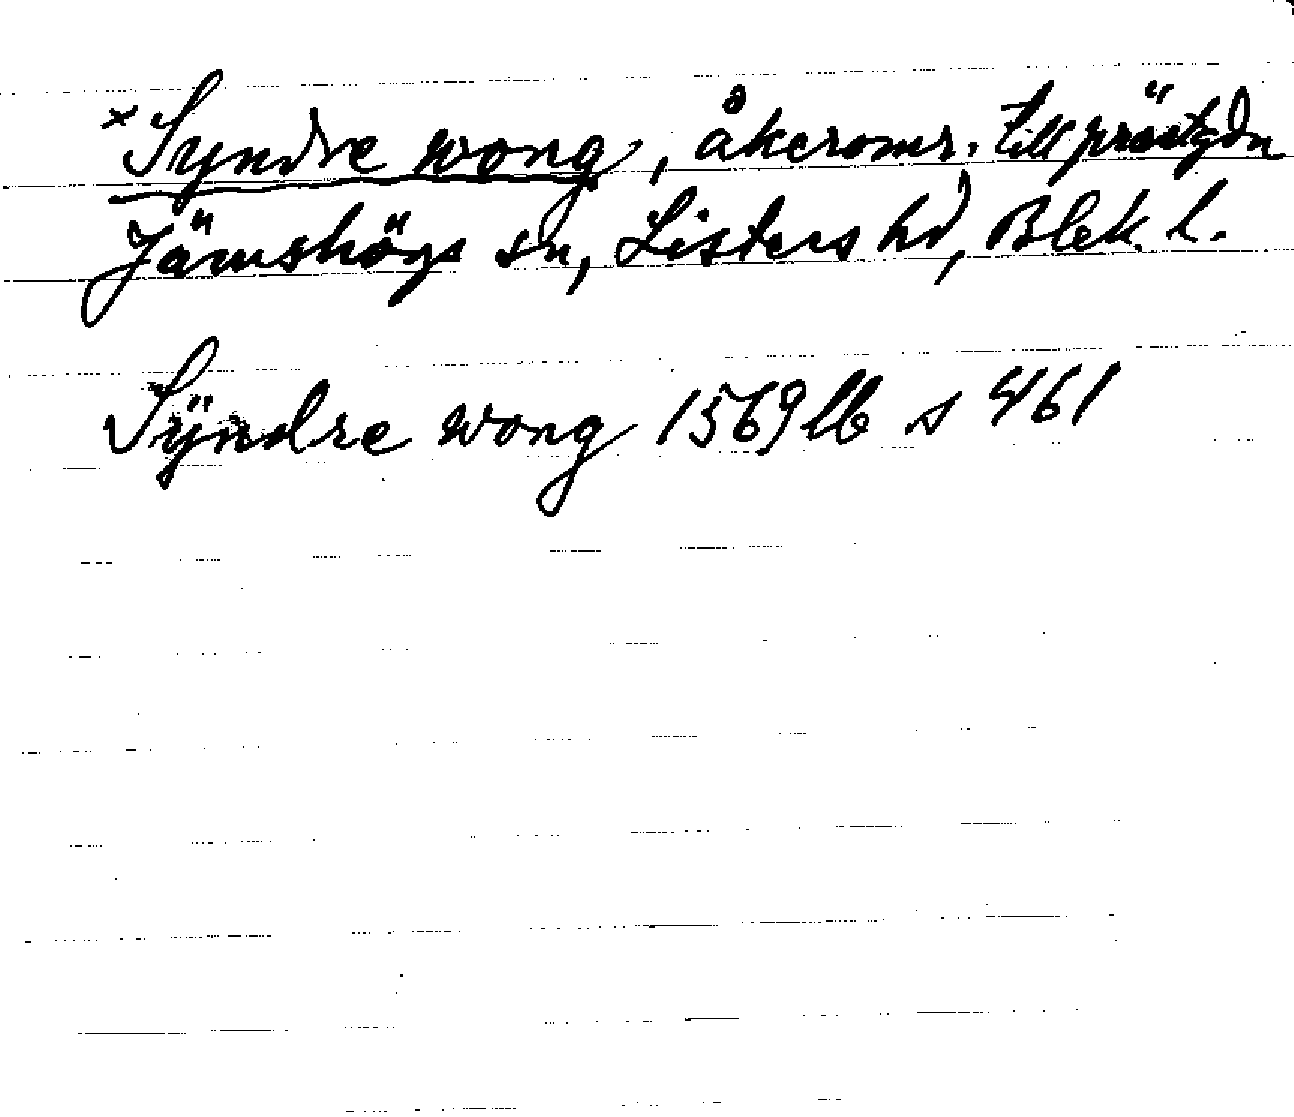 *Syndre wong, åkeromr. till prästgdn
Jämshögs sn, Listers hd, Blek. l.
Sÿndre wong 1569 lb s 461